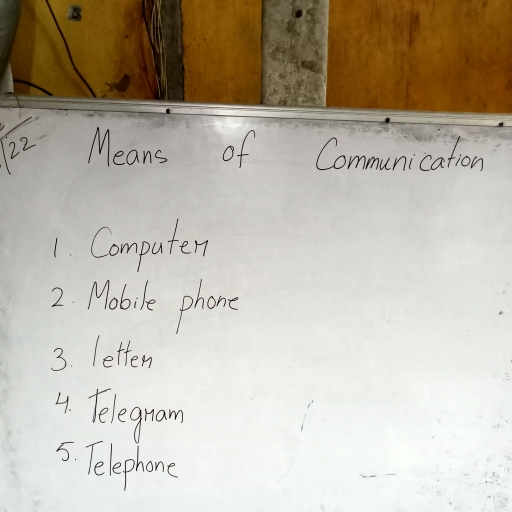 22
Means of Communication
1. Computer
2. Mobile phone
3. letter
4. Telegram
5. Telephone